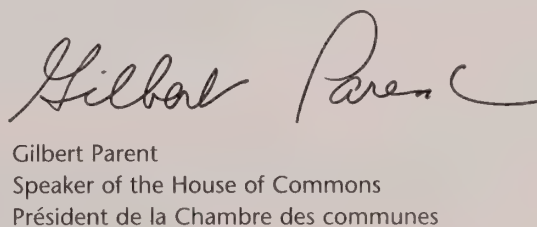 Gilbert Parent
Gilbert Parent
Speaker of the House of Commons
Président de la Chambre des communes